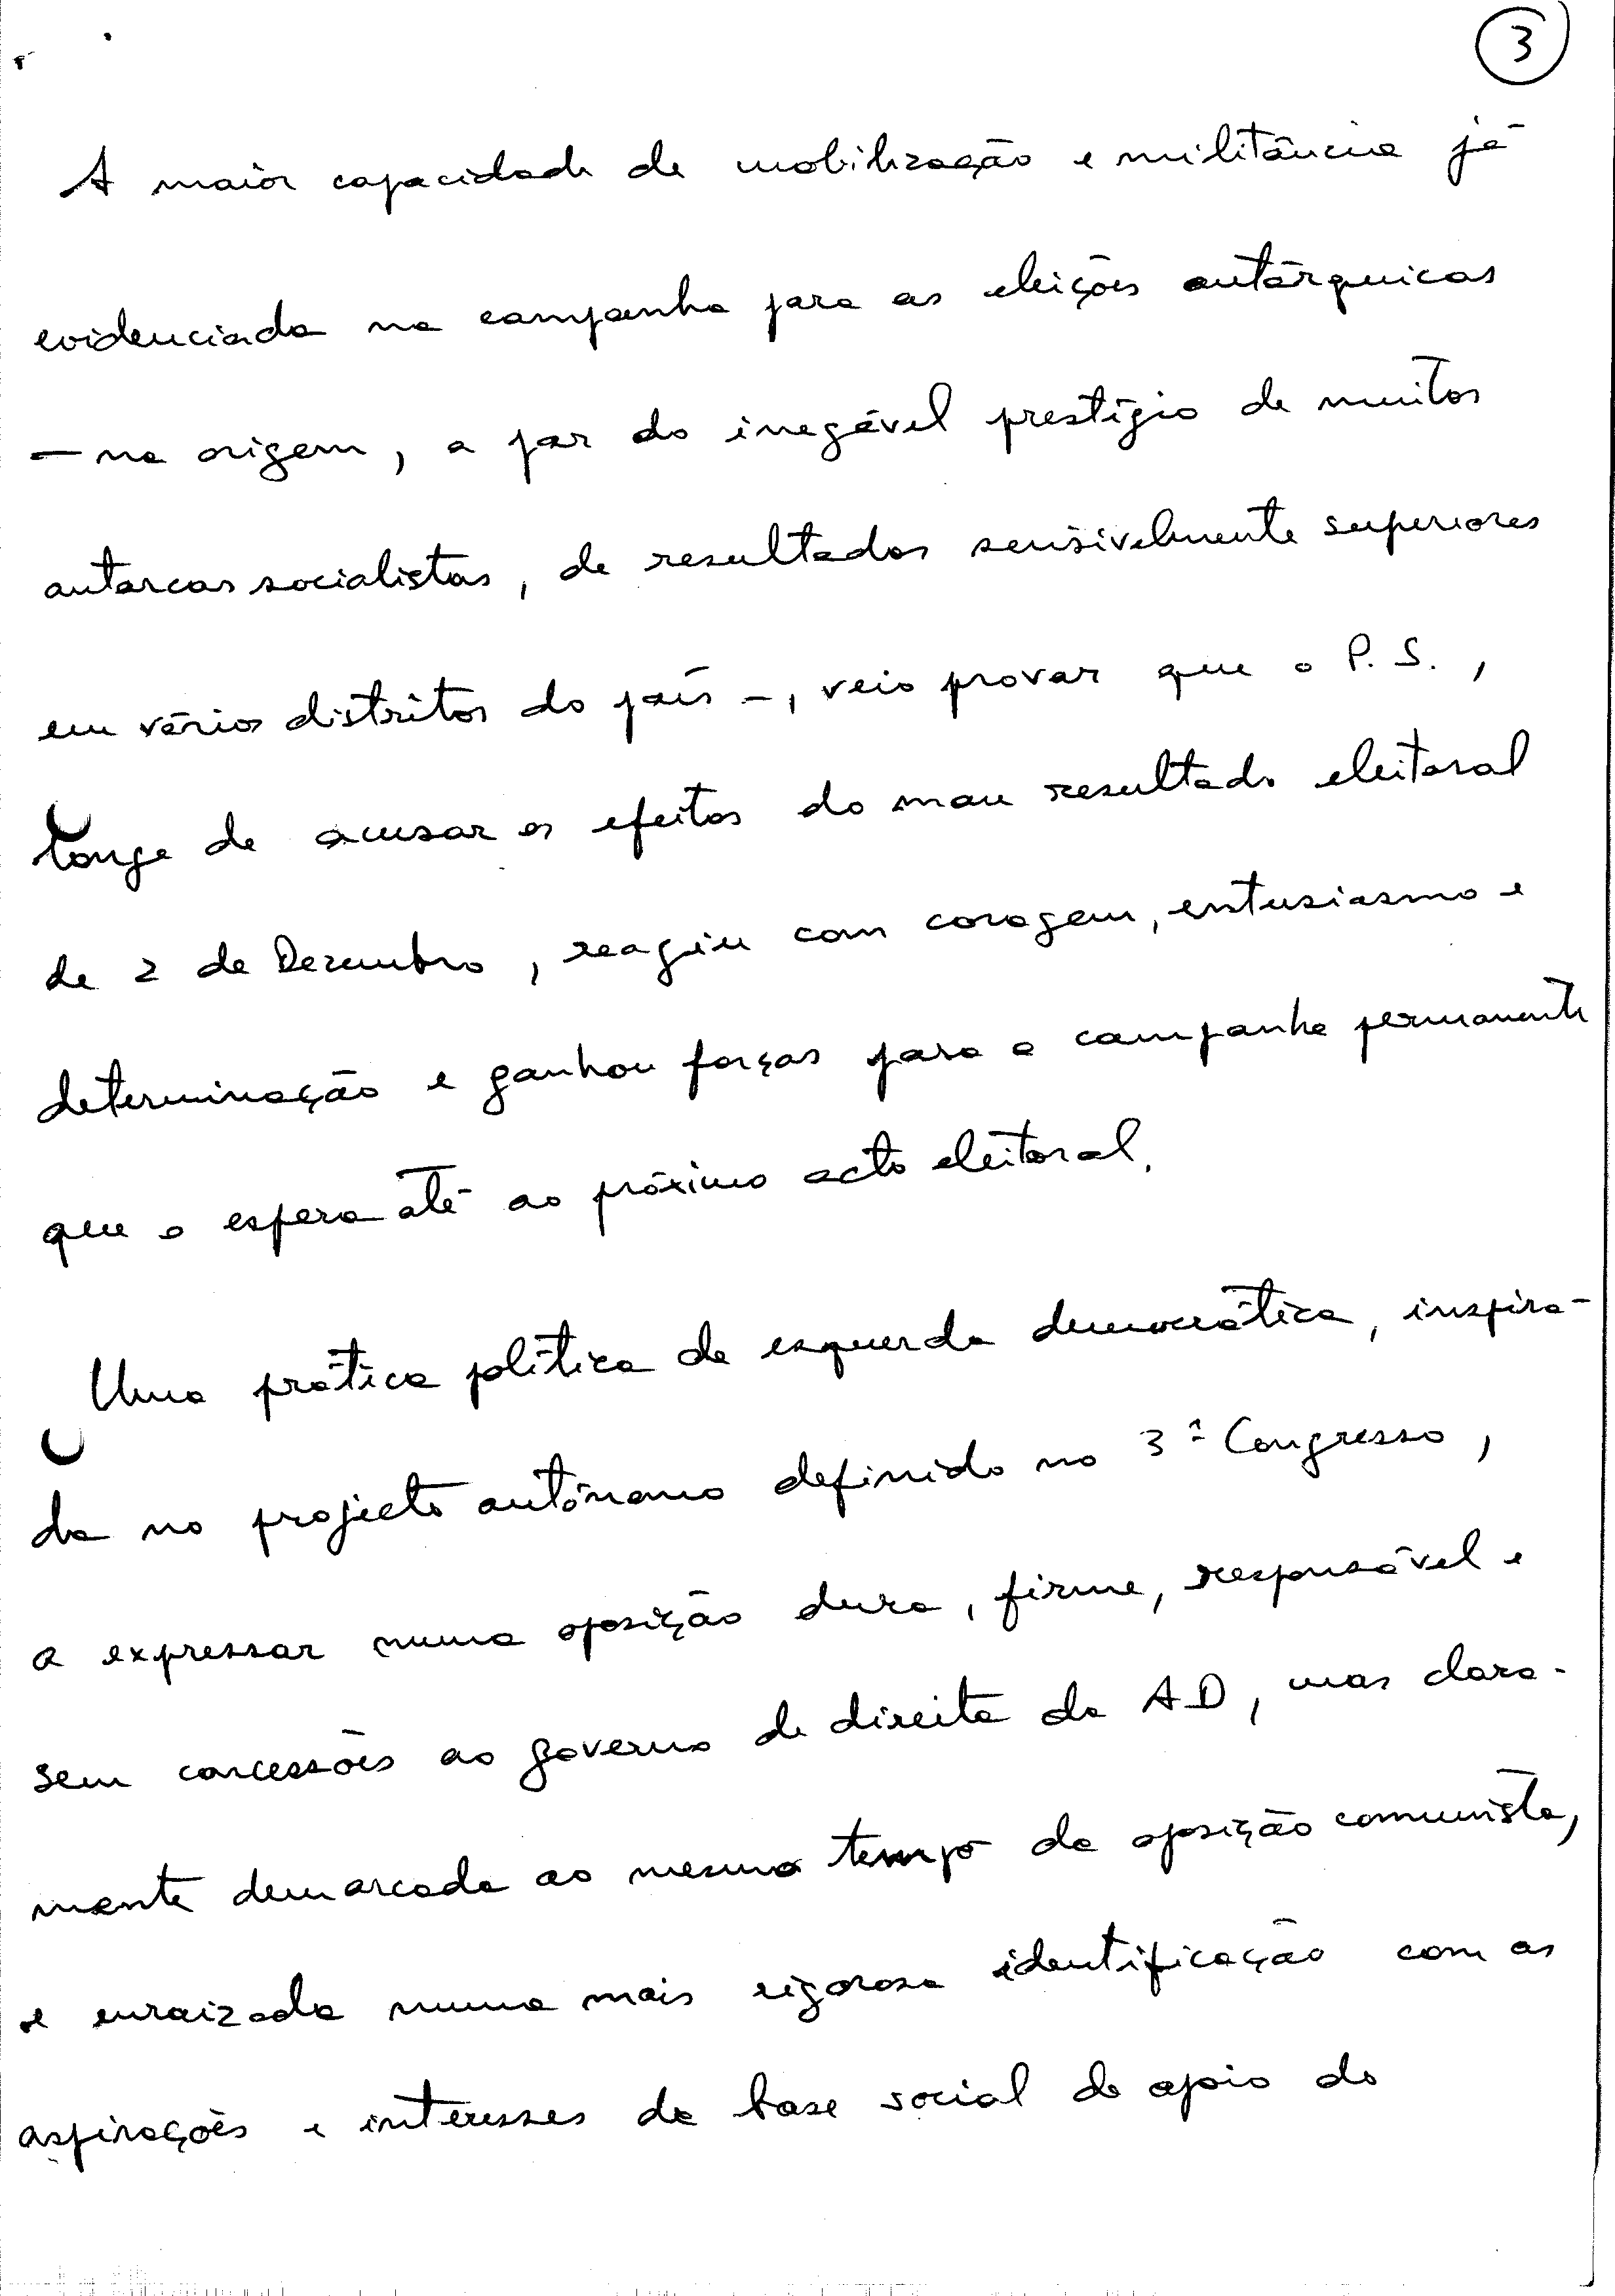 3
A maior capacidade de mobilização e militância já
evidenciada na campanha para as eleições autárquicas
— na origem, a par do inegável prestígio de muitos
autarcas socialistas, de resultados sensivelmente superiores
em vários distritos do país —, veio provar que o P. S.,
longe de acusar os efeitos do mau resultado eleitoral
de 2 de Dezembro, reagiu com coragem, entusiasmo e
determinação e ganhou forças para a campanha permanente
que o espera até ao próximo acto eleitoral.
Uma prática política de esquerda democrática, inspira-
da no projecto autónomo definido no 3º Congresso,
a expressar numa oposição dura, firme, responsável e
sem concessões ao governo de direita da AD, mas clara-
mente demarcada ao mesmo tempo da oposição comunista,
e enraizada numa mais rigorosa identificação com as
aspirações e interesses da base social de apoio do